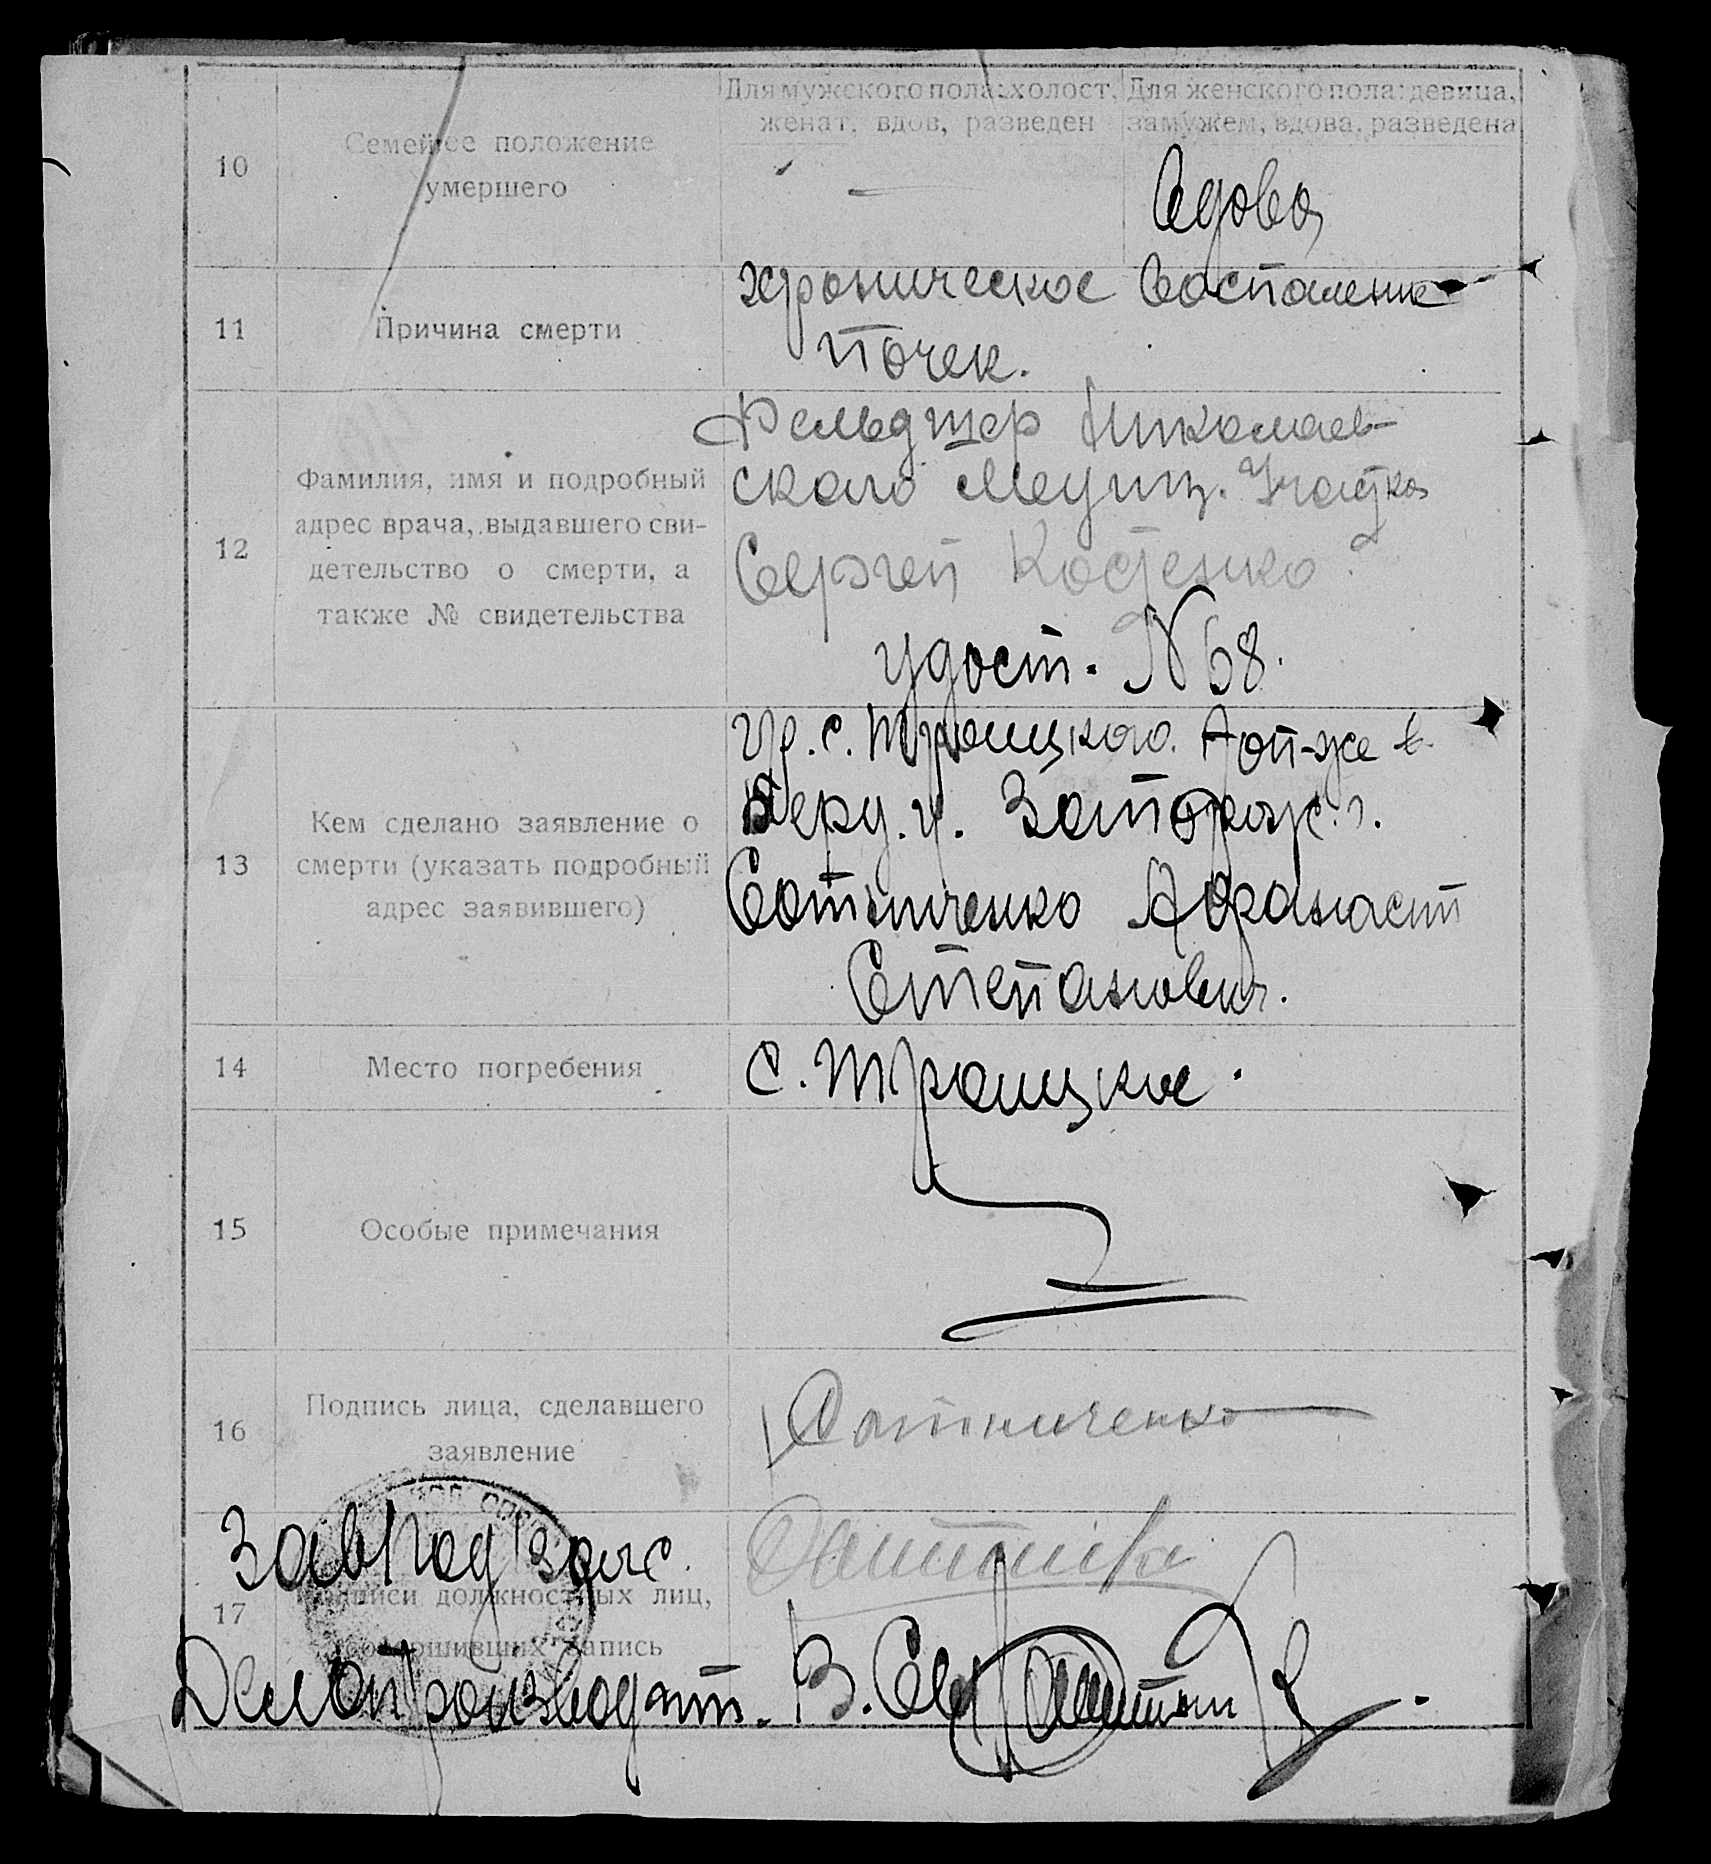 Для мужского пола: холост, женат, вдов, разведен
Для женского пола: девица, замужем, вдова, разведена
10
Семейное положение
умершего
—
вдова
11
Причина смерти
хроническое воспаление
почек.
12
Фамилия, имя и подробный
адрес врача, выдавшего сви-
детельство о смерти, а
также № свидетельства
Фельдшер Николаев-
ского Медиц. Участка
Сергей Костенко
удост. № 68.
13
Кем сделано заявление о
смерти (указать подробный
адрес заявившего)
гр. с. Троицкого
Запорож.
Сотниченко Афанасий
Степанович.
14
Место погребения
с. Троицкое.
15
Особые примечания
16
Подпись лица, сделавшего
заявление
Сотниченко
17
Подписи должностных лиц,
совершивших запись
Завпод загс.
Делопроизводит. В.